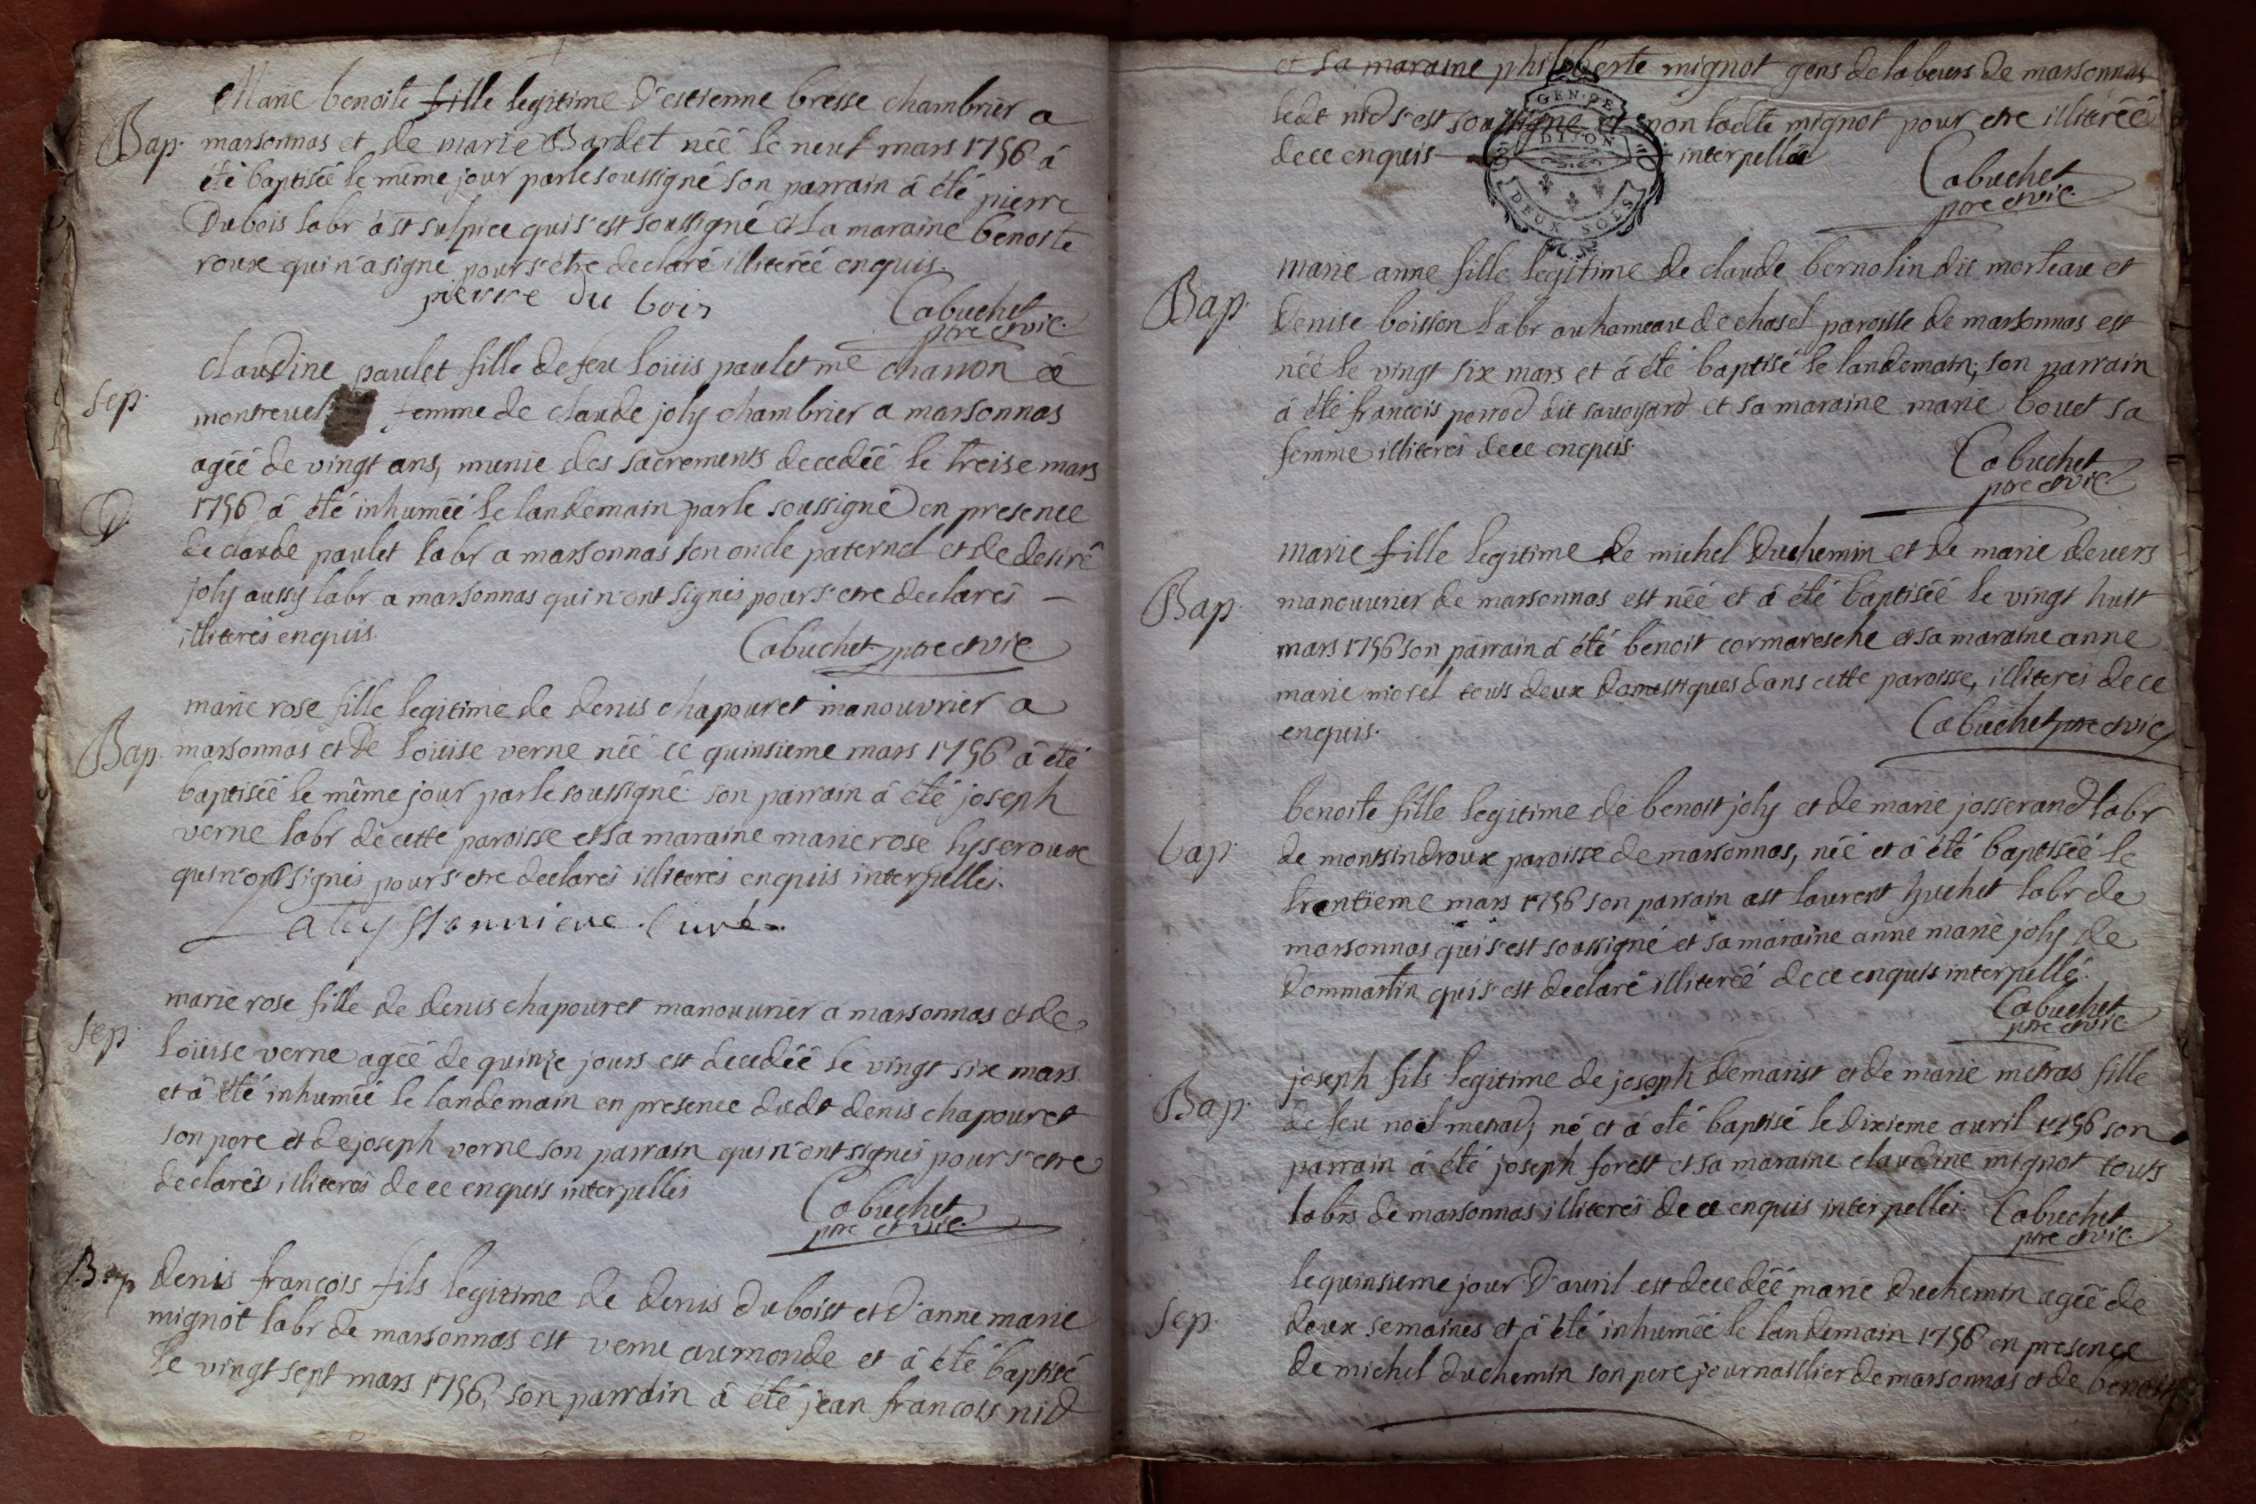 Marie benoite fille legitime d'estienne bresse chambrier a
Bap. marsonnas et de marie Bardet née le neuf mars 1756 á
été baptisée le même jour par le soussigné son parrain á été pierre
Dubois labr á st sulpice qui s'est soussigné et la maraine benoite
roux qui n'a signé pour s'etre declaré illiteréé enquis
pierre du bois Cabuchet
ptre et vic.
claudine paulet fille de feu loüis paulet me charron á
Sep. montrevel femme de claude joly chambrier a marsonnas
agéé de vingt ans, munie des sacrements decedéé le treise mars
1756 á été inhuméé le landemain par le soussigné en presence
de claude paulet labr a marsonnas son oncle paternel et de desiré
joly aussy labr a marsonnas qui n'ont signés pour s'etre declarés
illiterés enquis. Cabuchet ptre et vic
marie rose fille legitime de denis chapouret manouvrier a
Bap. marsonnas et de loüise verne néé ce quinsieme mars 1756 á été
baptiséé le même jour par le soussigné son parrain á été joseph
verne labr de cette paroisse et sa maraine marie rose
qui n'ont signés pour s'etre declarés illiterés enquis interpellés.
curé
marie rose fille de denis chapouret manouvrier a marsonnas et de
Sep. loüise verne agéé de quinze jours est decedéé le vingt six mars
et á été inhuméé le landemain en presence dudt denis chapouret
son pere et de joseph verne son parrain qui n'ont signés pour s'etre
declarés illiterés de ce enquis interpellés Cabuchet
ptre et vic.
Bap denis francois fils legitime de denis duboist et d'anne marie
mignot labr de marsonnas est venu au monde et á été baptisé
le vingt sept mars 1756, son parrain á été jean francois nid
et sa maraine philiberte mignot gens de labeurs de marsonnas
ledt nid s'est soussigné et non ladte mignot pour etre illiteréé
de ce enquis interpelléé Cabuchet
ptre et vic.
GEN. DE
DIJON
DEUX SOLS
marie anne fille legitime de claude bernolin dit morteau et
Bap. denise boisson labr au hameau de chasel paroisse de marsonnas est
néé le vingt six mars et á été baptisé le landemain; son parrain
á été francois perrod dit savoyard et sa maraine marie bouet sa
femme illiterés de ce enquis. Cabuchet
ptre et vic.
marie fille legitime de michel duchemin et de marie devers
Bap. manouvrier de marsonnas est néé et á été baptiséé le vingt huit
mars 1756 son parrain á été benoit cormaresche et sa maraine anne
marie morel touts deux domestiques dans cette paroisse, illiterés de ce
enquis. Cabuchet ptre et vic
benoite fille legitime de benoit joly et de marie josserand labr
bap. de montsindroux paroisse de marsonnas, néé et á été baptiséé le
trentieme mars 1756 son parrain est laurent huchet labr de
marsonnas qui s'est soussigné et sa maraine anne marie joly de
dommartin qui s'est declaré illiteréé de ce enquis interpellé.
Cabuchet
ptre et vic
joseph fils legitime de joseph demarist et de marie metras fille
Bap. de feu noël metras, né et á été baptisé le dixieme avril 1756 son
parrain á été joseph forest et sa maraine claudine mignot touts
labrs de marsonnas illiterés de ce enquis interpellés. Cabuchet
ptre et vic.
le quinsieme jour d'avril est decedéé marie duchemin agéé de
Sep. deux semaines et á été inhuméé le landemain 1756 en presence
de michel duchemin son pere journaillier de marsonnas et de benoit